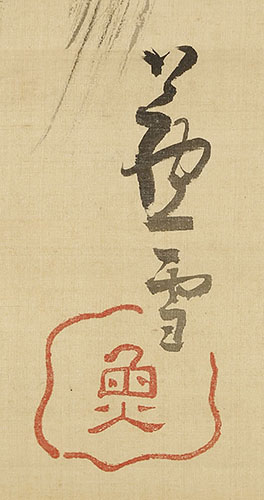 蘆雪
魚